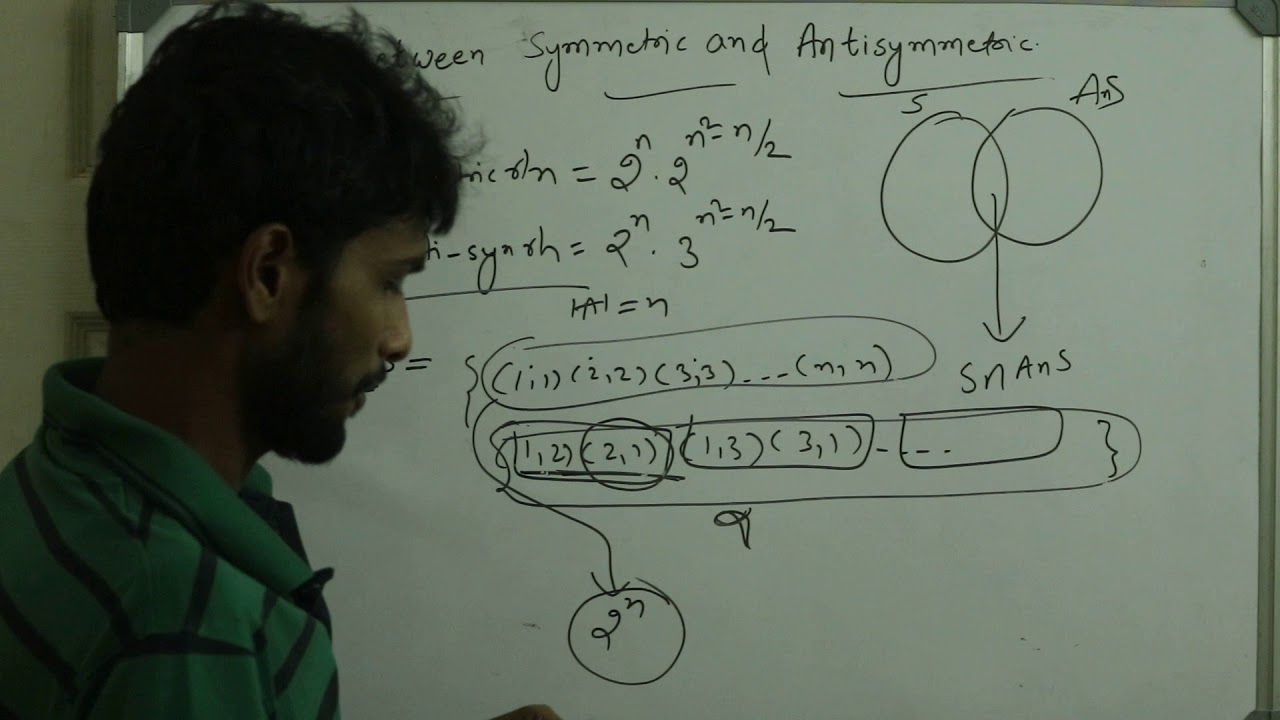 etween Symmetric and Antisymmetric.
S AnS
ric r/n = 2^n . 2^{n²-n/2}
ti-sym r/n = 2^n . 3^{n²-n/2}
|A| = n
= { (1,1) (2,2) (3,3) ... (n,n)
S∩AnS
(1,2) (2,1) (1,3) (3,1) - - .. }
φ
2^n